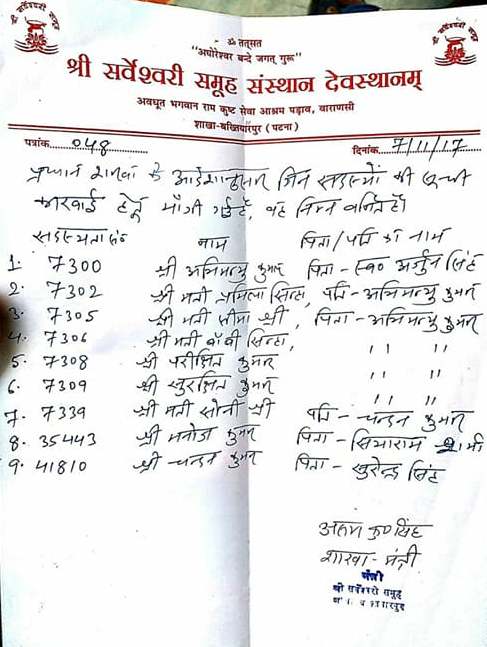 श्री सर्वेश्वरी समूह
श्री सर्वेश्वरी समूह
ॐ तत्सत
"अघोरेश्वर बन्दे जगत् गुरू"
श्री सर्वेश्वरी समूह संस्थान देवस्थानम्
अवधूत भगवान राम कुष्ट सेवा आश्रम पड़ाव, वाराणसी
शाखा-बख्तियारपुर ( पटना )
पत्रांक 048 दिनांक 7/11/17
प्रधान शाखा के आदेशानुसार जिन सदस्यों की सूची
कारवाई हेतू माँगी गई है, वह निम्न वर्णित है।
सदस्यता सं० नाम पिता/पति का नाम
1. 7300 श्री अभिमन्यु कुमार पिता - स्व० अर्जुन सिंह
2. 7302 श्री मती प्रमिला सिन्हा, पति - अभिमन्यु कुमार
3. 7305 श्री मती सीमा श्री, पिता - अभिमन्यु कुमार
4. 7306 श्री मती बॉबी सिन्हा, " " "
5. 7308 श्री परीक्षित कुमार " " "
6. 7309 श्री सुरक्षित कुमार " " "
7. 7339 श्री मती सोनी श्री पति - चन्दन कुमार
8. 35443 श्री मनोज कुमार पिता - सियाराम शर्मा
9. 41810 श्री चन्दन कुमार पिता - सुरेन्द्र सिंह
कु० सिंह
शाखा - मंत्री
मंत्री
श्री सर्वेश्वरी समूह